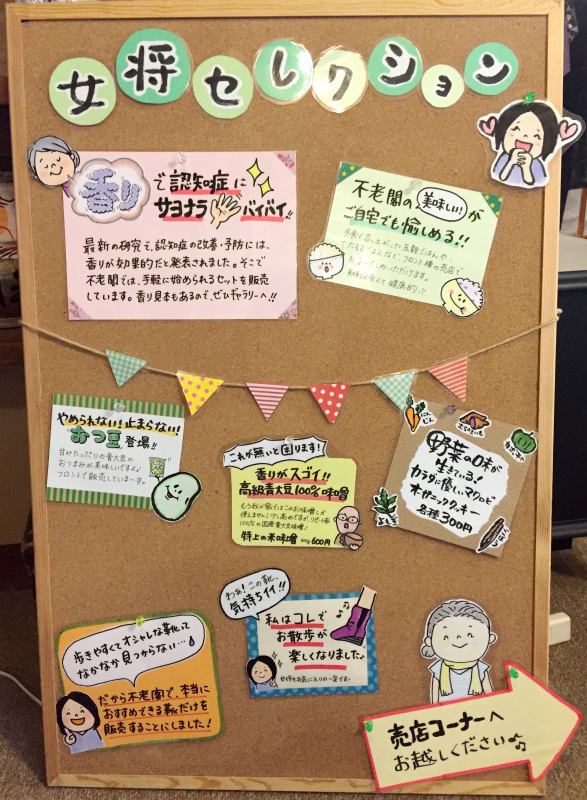 女将セレクション
香りで認知症に
サヨナラ バイバイ!!
最新の研究で、認知症の改善・予防には、
香りが効果的だと発表されました。そこで
不老閣では、手軽に始められるセットを販売
しています。香り見本もあるので、ぜひギャラリーへ!!
不老閣の美味しい!が
ご自宅でも愉しめる!!
やめられない!止まらない!
おつ豆 登場!!
甘みたっぷりの青大豆の
おつまみが美味しいですよ♪
フロントで販売していまーす。
これが無いと困ります!
香りがスゴイ!!
高級青大豆100%味噌
特上の米味噌 600円
野菜の味が
生きている!
カラダに優しいマクロビ
オーガニッククッキー
各種300円
にんじん
よもぎ
ごぼう
わぁ!この靴、
気持ちイイ!!
私はコレで
お散歩が
楽しくなりました♪
歩きやすくてオシャレな靴って
なかなか見つからない…
だから不老閣で、本当に
おすすめできる靴だけを
販売することにしました!
売店コーナーへ
お越しください♪